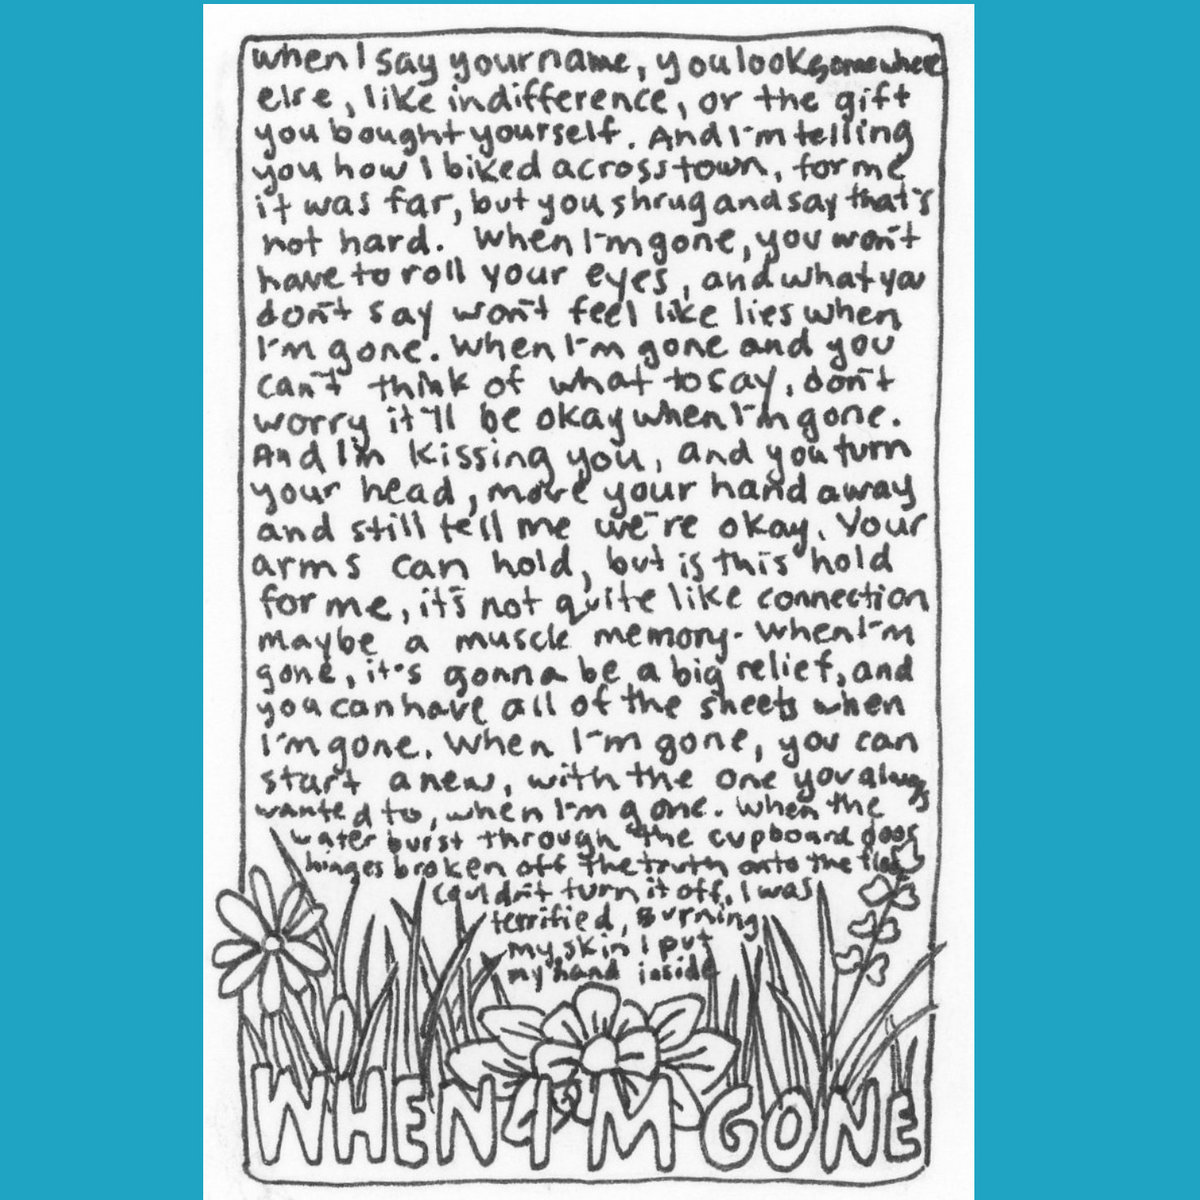 when I say your name, you look somewhere
else, like indifference, or the gift
you bought yourself. And I'm telling
you how I biked across town, for me
it was far, but you shrug and say that's
not hard. When I'm gone, you won't
have to roll your eyes, and what you
don't say won't feel like lies when
I'm gone. When I'm gone and you
can't think of what to say, don't
worry it'll be okay when I'm gone.
And I'm kissing you, and you turn
your head, move your hand away
and still tell me we're okay. Your
arms can hold, but is this hold
for me, it's not quite like connection
maybe a muscle memory. When I'm
gone, it's gonna be a big relief, and
you can have all of the sheets when
I'm gone. When I'm gone, you can
start anew, with the one you always
wanted to, when I'm gone. When the
water burst through the cupboard doors
hinges broken off the truth onto the floor
couldn't turn it off, I was
terrified, Burning
my skin I put
my hand inside
WHEN I'M GONE